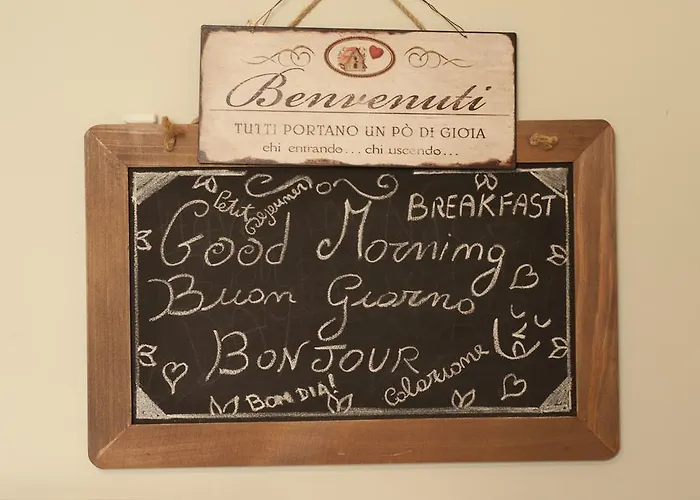 Benvenuti
TUTTI PORTANO UN PÒ DI GIOIA
chi entrando... chi uscendo...
Petit
dejeuner
BREAKFAST
Good Morning
Buon Giorno
BONJOUR
BOM DIA!
Colazione